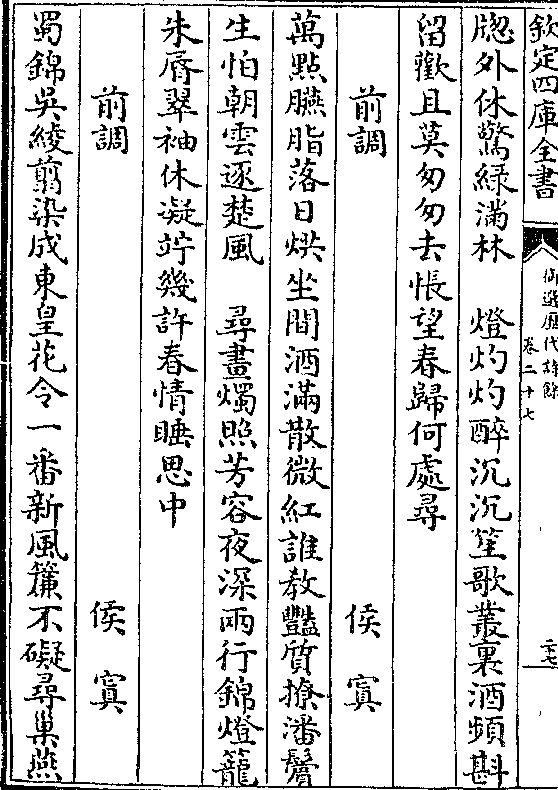 欽定四庫全書
御選歷代詩餘
卷二十七
二十七
牕外休驚緑滿林　燈灼灼醉沉沉笙歌叢裏酒頻斟
留歡且莫匆匆去悵望春歸何處尋
前調　侯寘
萬點臙脂落日烘坐間酒滿散微紅誰教豔質撩潘鬢
生怕朝雲逐楚風　尋畫燭照芳容夜深兩行錦燈籠
朱脣翠袖休凝竚幾許春情睡思中
前調　侯寘
蜀錦吳綾剪染成東皇花令一番新風簾不礙尋巢燕